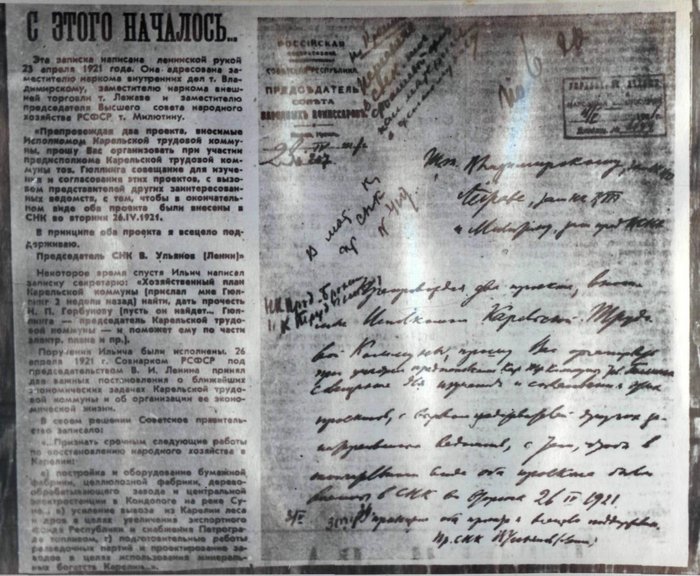 С ЭТОГО НАЧАЛОСЬ...
Эта записка написана ленинской рукой
23 апреля 1921 года. Она адресована за-
местителю наркома внутренних дел т.
Владимирскому, заместителю наркома внеш-
ней торговли т. Лежаве и заместителю
председателя Высшего совета народного
хозяйства РСФСР т. Милютину.
«Препровождая два проекта, вносимые
Исполкомом Карельской трудовой комму-
ны, прошу Вас организовать при участии
предисполкома Карельской трудовой ком-
муны тов. Гюллинга совещание для изуче-
ния и согласования этих проектов, с вызо-
вом представителей других заинтересован-
ных ведомств, с тем, чтобы в окончатель-
ном виде оба проекта были внесены в
СНК во вторник 26.IV.1921.
В принципе оба проекта я всецело под-
держиваю.
Председатель СНК В. Ульянов (Ленин)»
Некоторое время спустя Ильич написал
записку секретарю: «Хозяйственный план
Карельской коммуны (прислал мне Гюл-
линг 2 недели назад) найти, дать прочесть
Н. П. Горбунову (пусть он найдет... Гюл-
линга — председатель Карельской трудо-
вой коммуны — и поможет ему по части
электр. плана и пр.).
Поручения Ильича были исполнены. 26
апреля 1921 г. Совнарком РСФСР под
председательством В. И. Ленина принял
два важных постановления о ближайших
экономических задачах Карельской трудо-
вой коммуны и об организации ее эконо-
мической жизни.
В своем решении Советское правитель-
ство записало:
«...Признать срочным следующие работы
по восстановлению народного хозяйства в
Карелии:
а) постройка и оборудование бумажной
фабрики, целлюлозной фабрики, дерево-
обрабатывающего завода и центральной
электростанции в Кондопоге на реке Су-
не, в) усиление вывоза из Карелии леса
и дров в целях увеличения экспортного
фонда Республики и снабжения Петрогра-
да топливом, с) подготовительные работы
разведочных партий и проектирование за-
водов в целях использования минераль-
ных богатств Карелии...».
РОССИЙСКАЯ
СОВЕТСКАЯ РЕСПУБЛИКА
ПРЕДСЕДАТЕЛЬ
СОВЕТА
НАРОДНЫХ КОМИССАРОВ
Тт. Владимирскому,
Лежаве, зам НКВТ
и Милютину, зам пред ВСНХ
Препровождая два проекта, вноси-
мые Исполкомом Карельской Трудо-
вой Коммуны, прошу Вас организовать
при участии предисполкома Кар. Тр. Коммуны тов. Гюллинга
совещание для изучения и согласования этих
проектов, с вызовом представителей других за-
интересованных ведомств, с тем, чтобы в
окончательном виде оба проекта были
внесены в СНК во вторник 26 IV 1921.
В принципе оба проекта я всецело поддерживаю.
Пр. СНК В. Ульянов (Ленин)